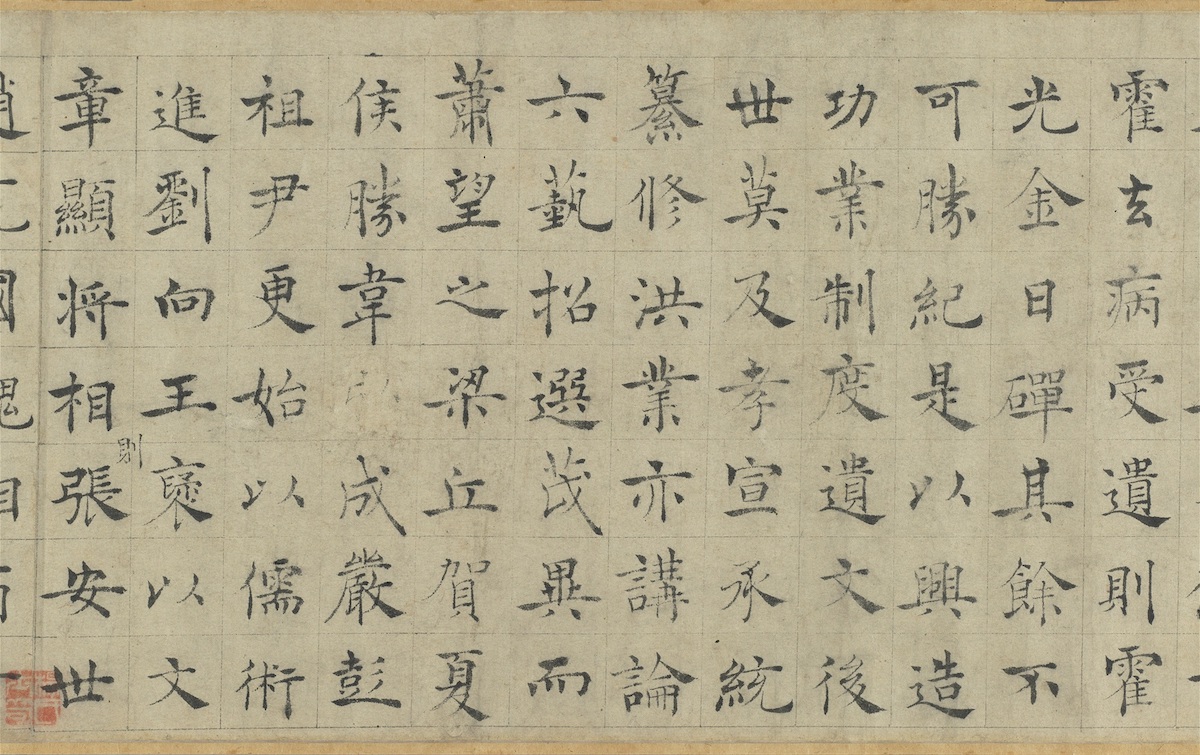 霍去病受遺則霍
光金日磾其餘不
可勝紀是以興造
功業制度遺文後
世莫及孝宣承統
纂修洪業亦講論
六藝招選茂異而
蕭望之梁丘賀夏
侯勝韋成嚴彭
祖尹更始以儒術
進劉向王褒以文
章顯將相則張安世